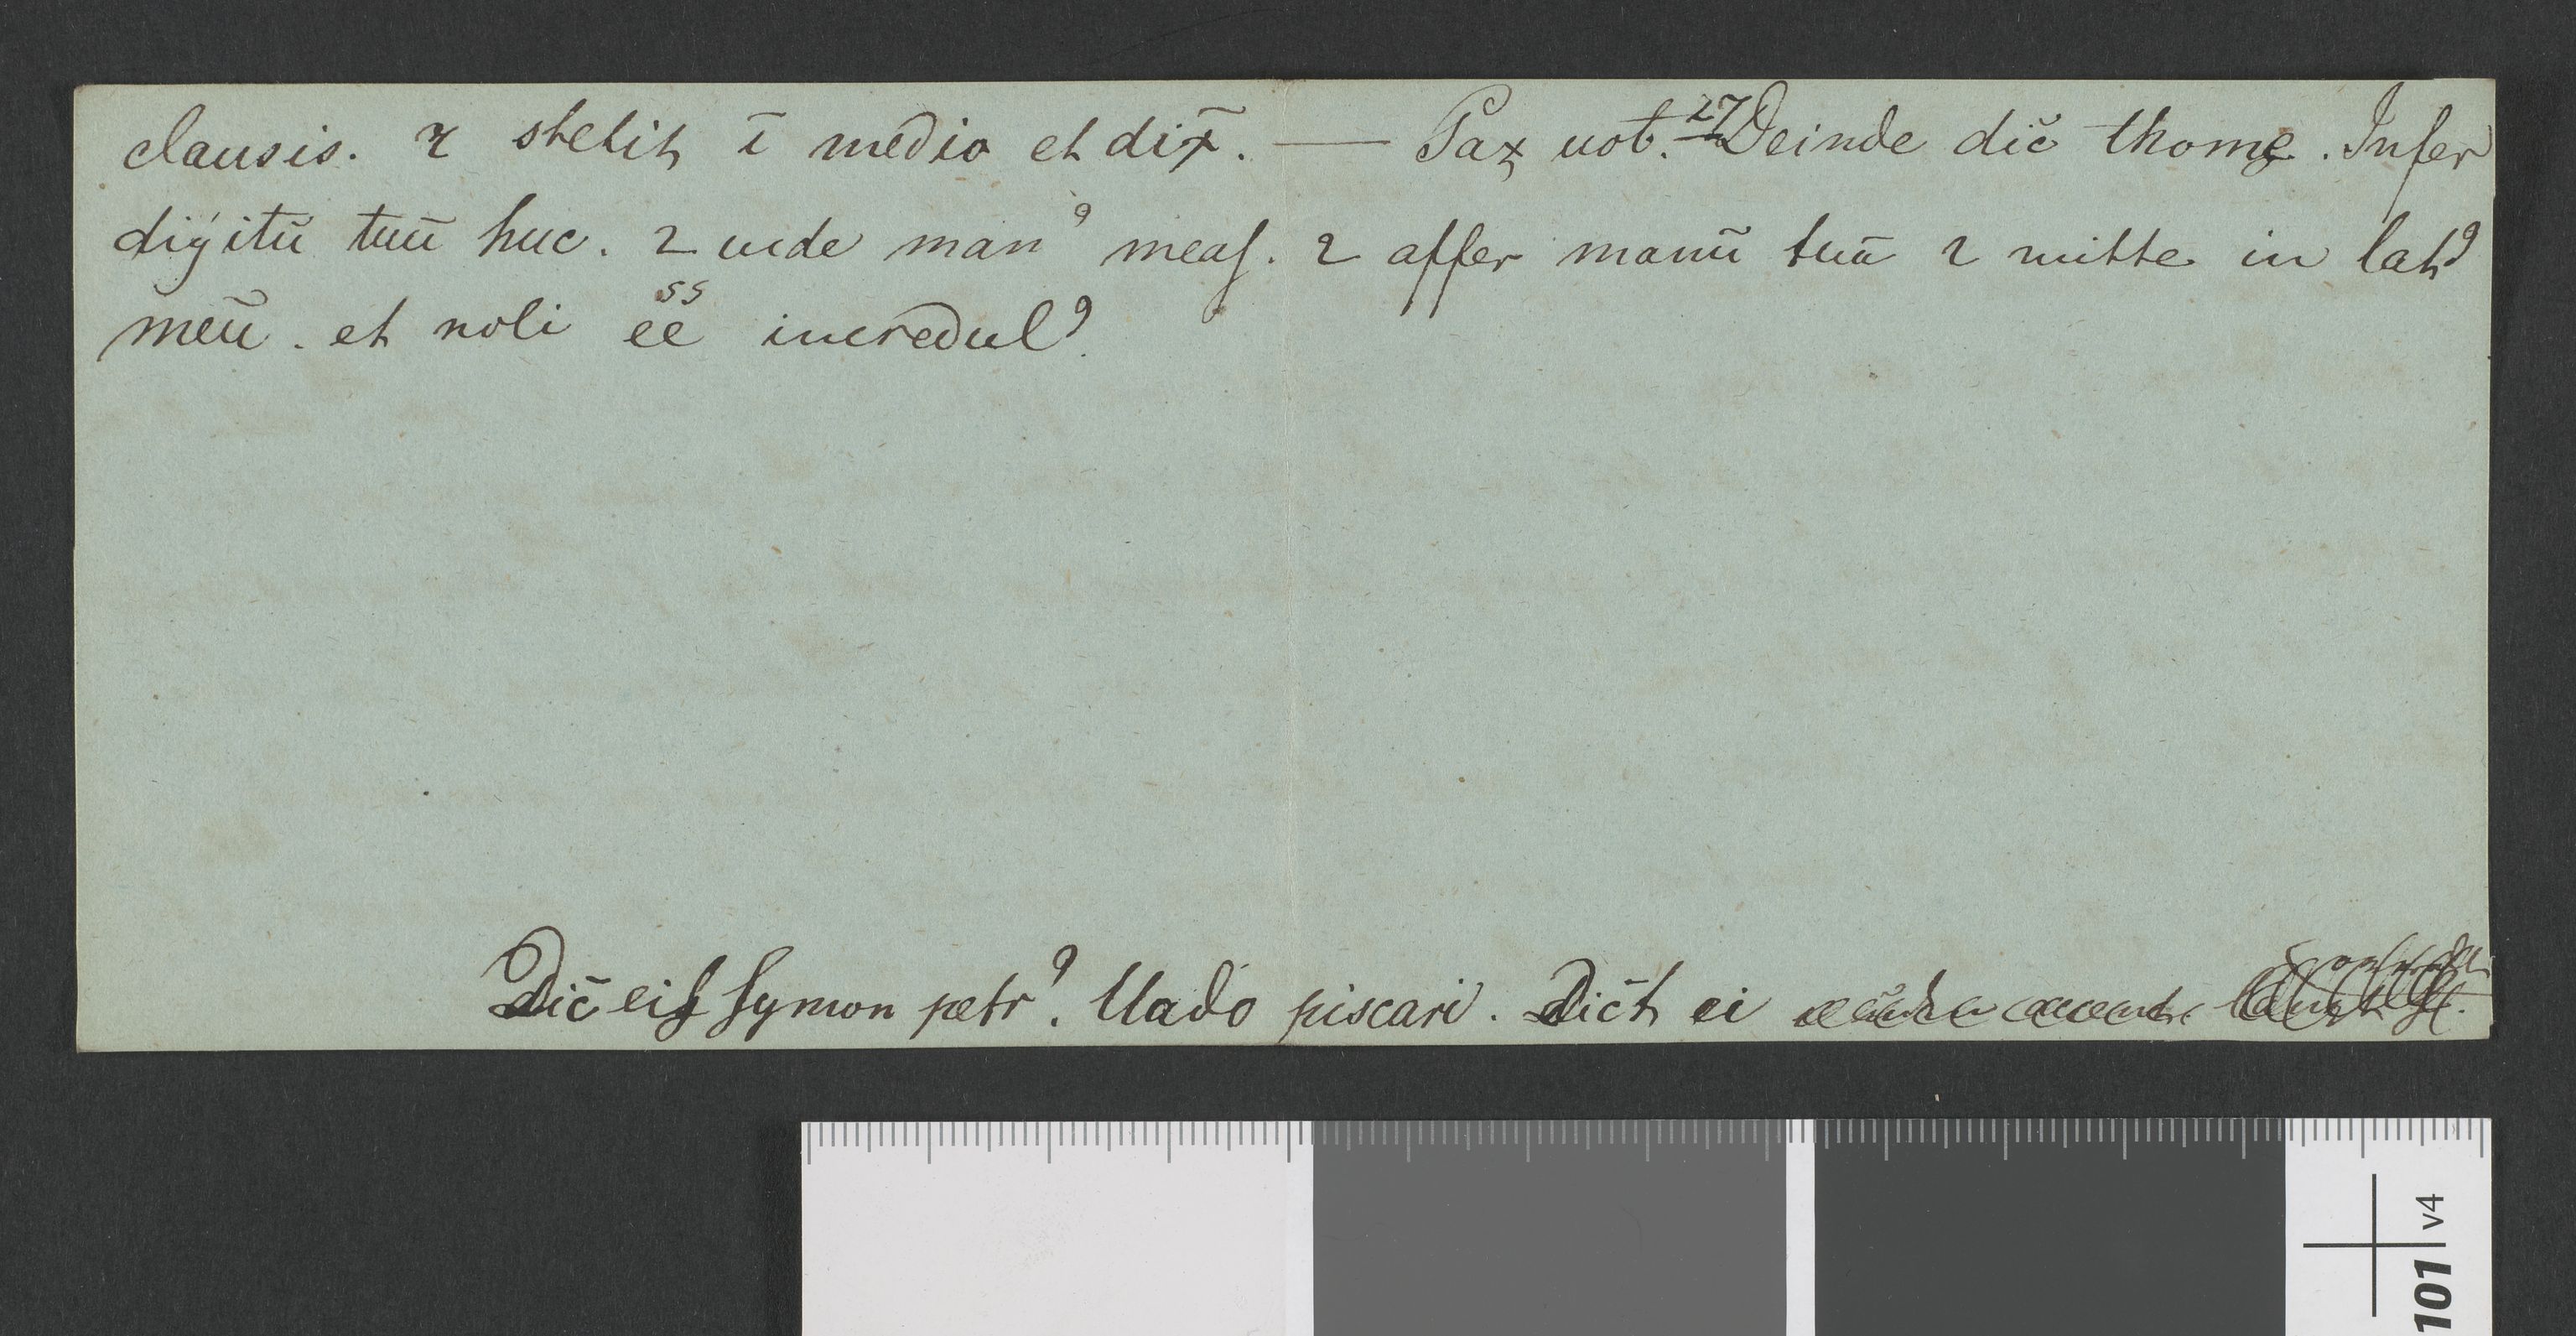 clausis. ⁊ stetit ī medio et dix̄. — Pax uob̄. 27 Deinde dic̄ thomę. Infer
digitū tuū huc. ⁊ uide manꝰ meaſ. ⁊ affer manū tuā ⁊ mitte in latꝰ
meū. et noli ēē incredulꝰ.
ss
Dic̄ eiſ ſymon petrꝰ. Uado piscari. Dic̄t ei
101 v4